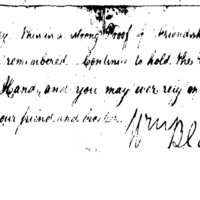 this is a strong Proof of Friendsh
remembered. Continue to hold the
Hand, and you may ever rely on
our friend and brother.
Wm Bl